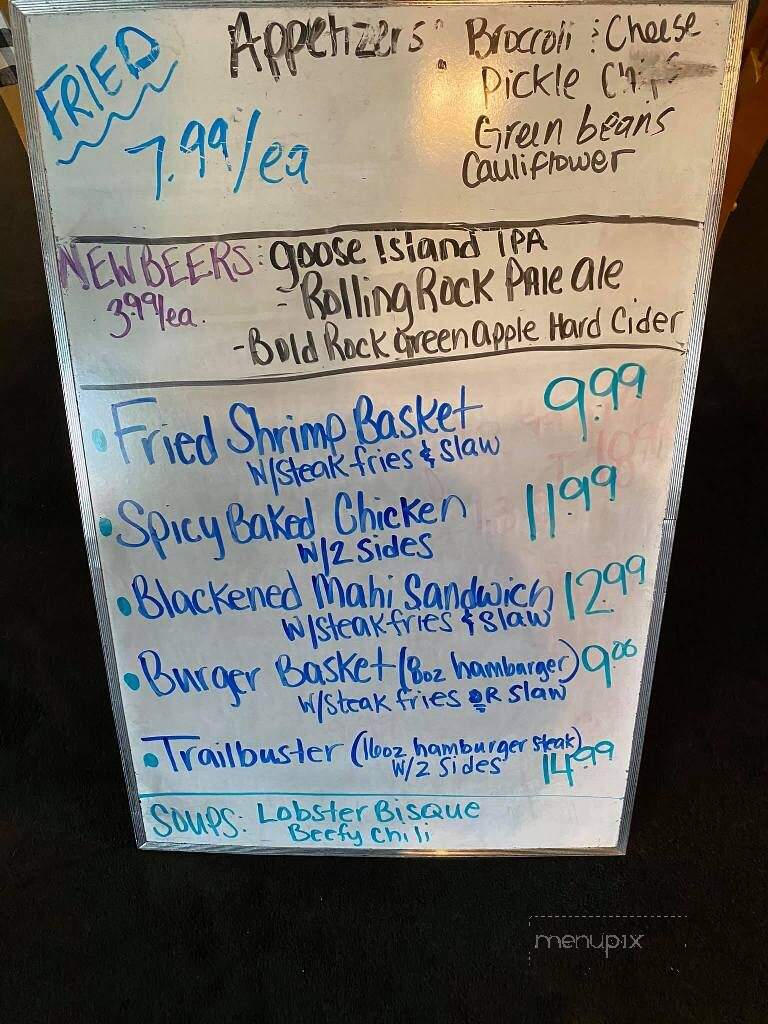 FRIED
7.99/ea
Appetizers: Broccoli & Cheese
Pickle Chips
Green beans
Cauliflower
NEW BEERS: Goose Island IPA
3.99/ea.
- Rolling Rock Pale Ale
- Bold Rock Green apple Hard Cider
• Fried Shrimp Basket 9.99
w/steak fries & slaw
• Spicy Baked Chicken 11.99
w/2 sides
• Blackened Mahi Sandwich 12.99
w/steak fries & slaw
• Burger Basket (8oz hambarger)
w/steak fries OR slaw
• Trailbuster (16oz hamburger steak) 14.99
w/2 sides
SOUPS: Lobster Bisque
Beefy Chili
menupix